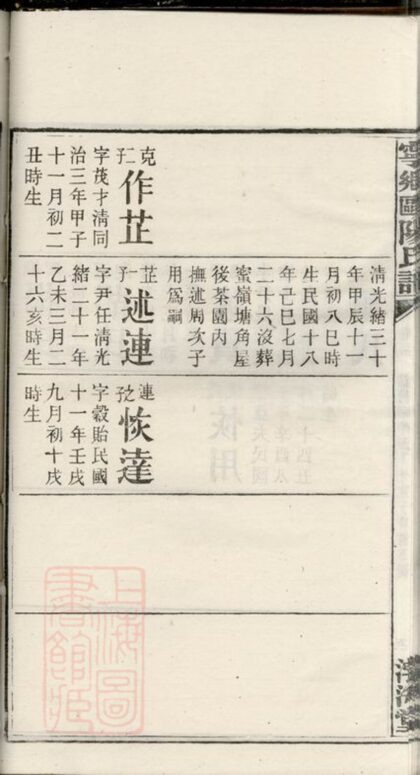 寧鄉歐陽氏譜
渤海堂
克子二
作芷
字茂才清同
治三年甲子
十一月初二
丑時生
清光緒三十
年甲辰十一
月初八巳時
生民國十八
年己巳七月
二十六沒葬
蜜嶺塘角屋
後茶園內
撫述周次子
用爲嗣
芷子一
述連
字尹任清光
緒二十一年
乙未三月二
十六亥時生
連
恢達
字穀貽民國
十一年壬戌
九月初十戌
時生
上海圖
書館藏